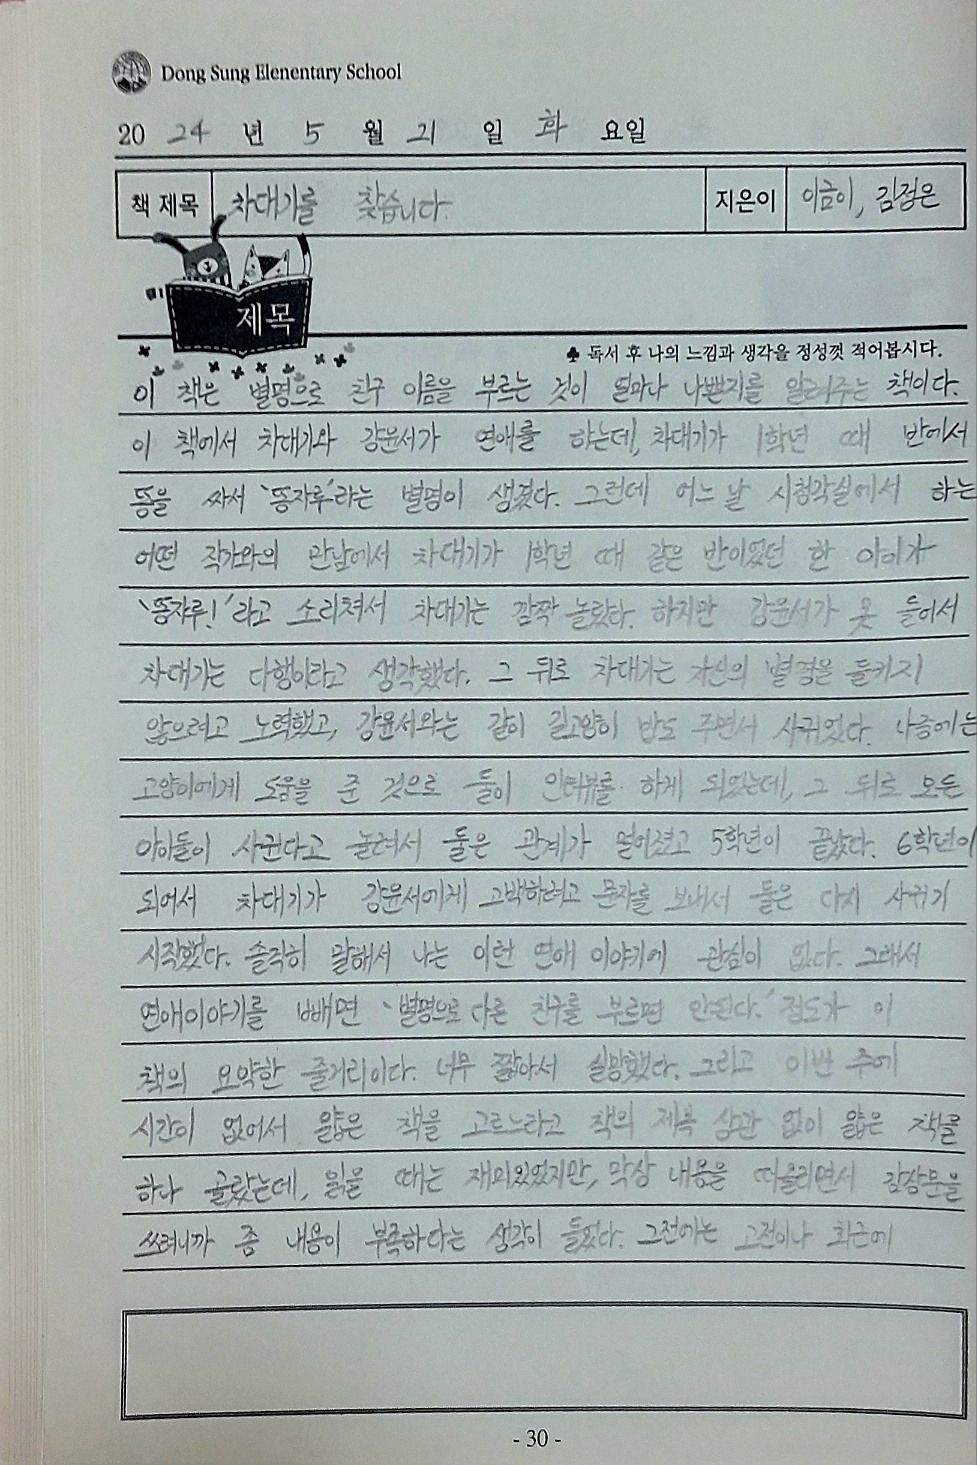 Dong Sung Elenentary School
20 24 년 5 월 21 일 화 요일
책 제목 차대기를 찾습니다. 지은이 이금이, 김정은
제목
♣ 독서 후 나의 느낌과 생각을 정성껏 적어봅시다.
이 책은 별명으로 친구 이름을 부르는 것이 얼마나 나쁜지를 알려주는 책이다.
이 책에서 차대기와 강윤서가 연애를 하는데, 차대기가 1학년 때 반에서
똥을 싸서 '똥자루'라는 별명이 생겼다. 그런데 어느 날 시청각실에서 하는
어떤 작가와의 만남에서 차대기가 1학년 때 같은 반이었던 한 아이가
'똥자루!'라고 소리쳐서 차대기는 깜짝 놀랐다. 하지만 강윤서가 못 들어서
차대기는 다행이라고 생각했다. 그 뒤로 차대기는 자신의 별명을 들키지
않으려고 노력했고, 강윤서와는 같이 길고양이 밥도 주면서 사귀었다. 나중에는
고양이에게 도움을 준 것으로 둘이 인터뷰를 하게 되었는데, 그 뒤로 모든
아이들이 사귄다고 놀려서 둘은 관계가 멀어졌고 5학년이 끝났다. 6학년이
되어서 차대기가 강윤서에게 고백하려고 문자를 보내서 둘은 다시 사귀기
시작했다. 솔직히 말해서 나는 이런 연애 이야기에 관심이 없다. 그래서
연애이야기를 빼면 '별명으로 다른 친구를 부르면 안된다.' 정도가 이
책의 요약한 줄거리이다. 너무 짧아서 실망했다. 그리고 이번 주에
시간이 없어서 얇은 책을 고르느라고 책의 제목 상관 없이 얇은 책을
하나 골랐는데, 읽을 때는 재미있었지만, 막상 내용을 떠올리면서 감상문을
쓰려니까 좀 내용이 부족하다는 생각이 들었다. 그전에는 고전이나 최근에
- 30 -